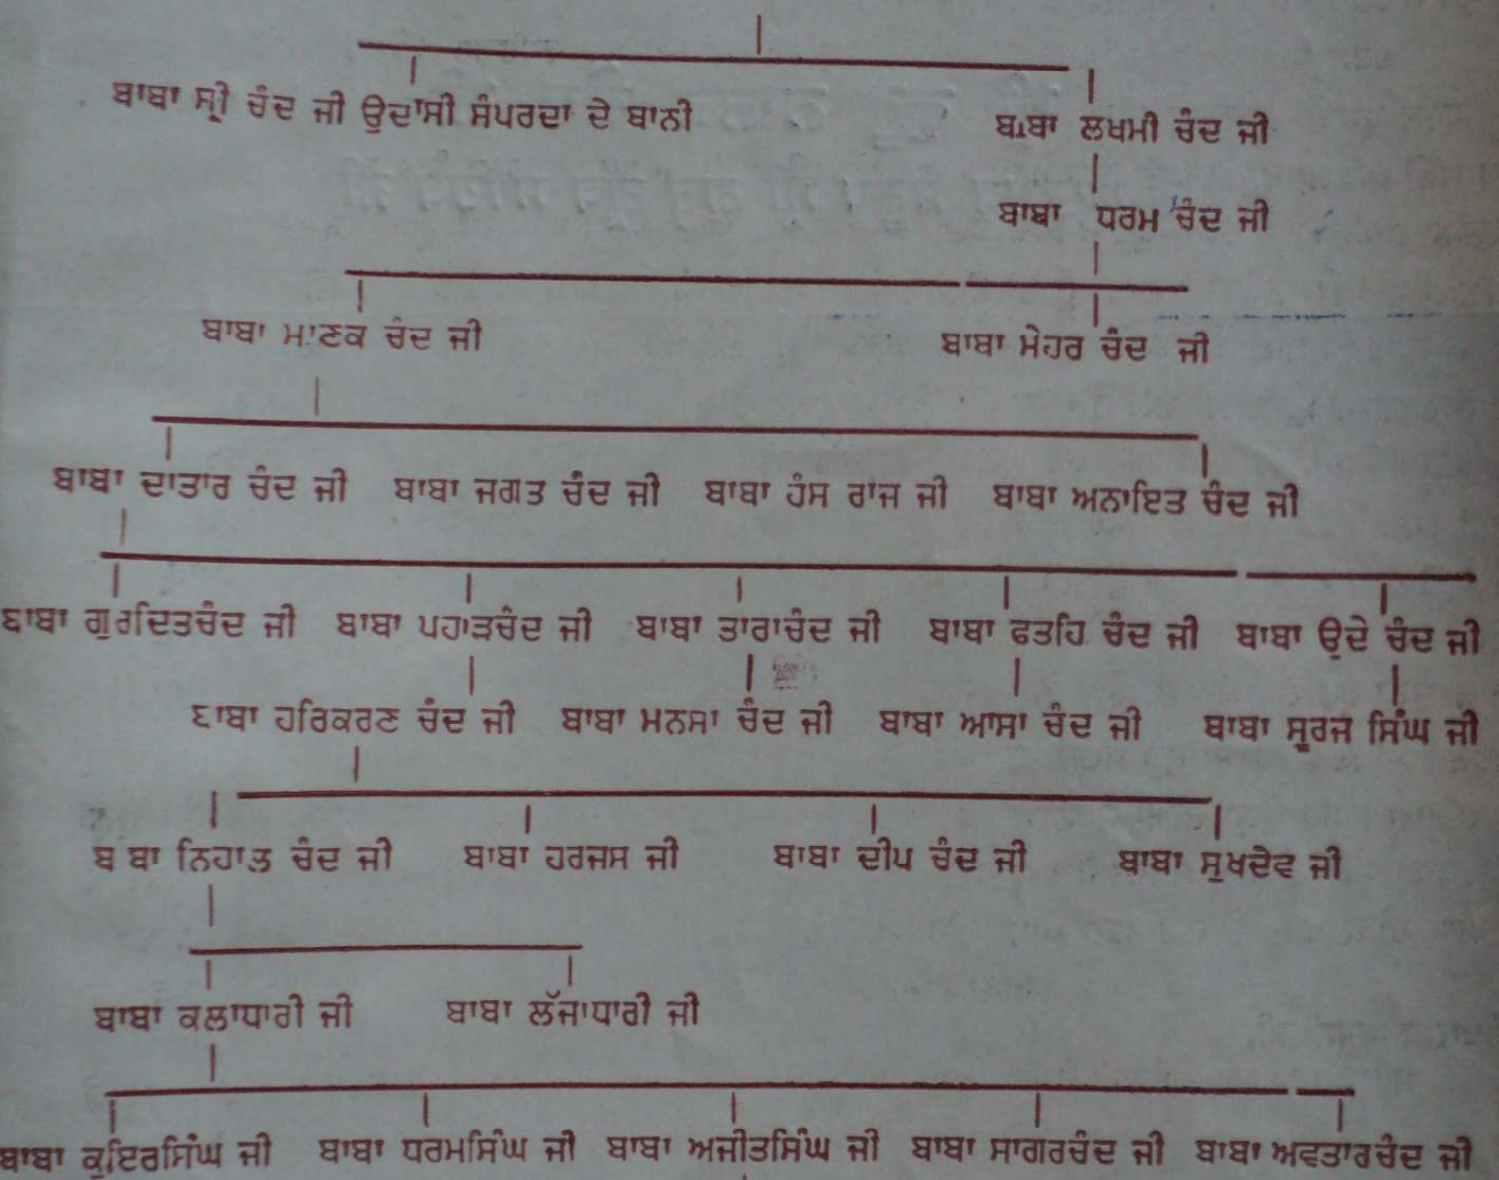 ਬਾਬਾ ਸ੍ਰੀ ਚੰਦ ਜੀ ਉਦਾਸੀ ਸੰਪਰਦਾ ਦੇ ਬਾਨੀ ਬਾਬਾ ਲਖਮੀ ਚੰਦ ਜੀ
ਬਾਬਾ ਧਰਮ ਚੰਦ ਜੀ
ਬਾਬਾ ਮਾਣਕ ਚੰਦ ਜੀ ਬਾਬਾ ਮੇਹਰ ਚੰਦ ਜੀ
ਬਾਬਾ ਦਾਤਾਰ ਚੰਦ ਜੀ ਬਾਬਾ ਜਗਤ ਚੰਦ ਜੀ ਬਾਬਾ ਹੰਸ ਰਾਜ ਜੀ ਬਾਬਾ ਅਨਾਇਤ ਚੰਦ ਜੀ
ਬਾਬਾ ਗੁਰਦਿਤਚੰਦ ਜੀ ਬਾਬਾ ਪਹਾੜਚੰਦ ਜੀ ਬਾਬਾ ਤਾਰਾਚੰਦ ਜੀ ਬਾਬਾ ਫਤਹਿ ਚੰਦ ਜੀ ਬਾਬਾ ਉਦੇ ਚੰਦ ਜੀ
ਬਾਬਾ ਹਰਿਕਰਣ ਚੰਦ ਜੀ ਬਾਬਾ ਮਨਸਾ ਚੰਦ ਜੀ ਬਾਬਾ ਆਸਾ ਚੰਦ ਜੀ ਬਾਬਾ ਸੂਰਜ ਸਿੰਘ ਜੀ
ਬਾਬਾ ਨਿਹਾਲ ਚੰਦ ਜੀ ਬਾਬਾ ਹਰਜਸ ਜੀ ਬਾਬਾ ਦੀਪ ਚੰਦ ਜੀ ਬਾਬਾ ਸੁਖਦੇਵ ਜੀ
ਬਾਬਾ ਕਲਾਧਾਰੀ ਜੀ ਬਾਬਾ ਲੱਜਾਧਾਰੀ ਜੀ
ਬਾਬਾ ਕੁਇਰਸਿੰਘ ਜੀ ਬਾਬਾ ਧਰਮਸਿੰਘ ਜੀ ਬਾਬਾ ਅਜੀਤਸਿੰਘ ਜੀ ਬਾਬਾ ਸਾਗਰਚੰਦ ਜੀ ਬਾਬਾ ਅਵਤਾਰਚੰਦ ਜੀ